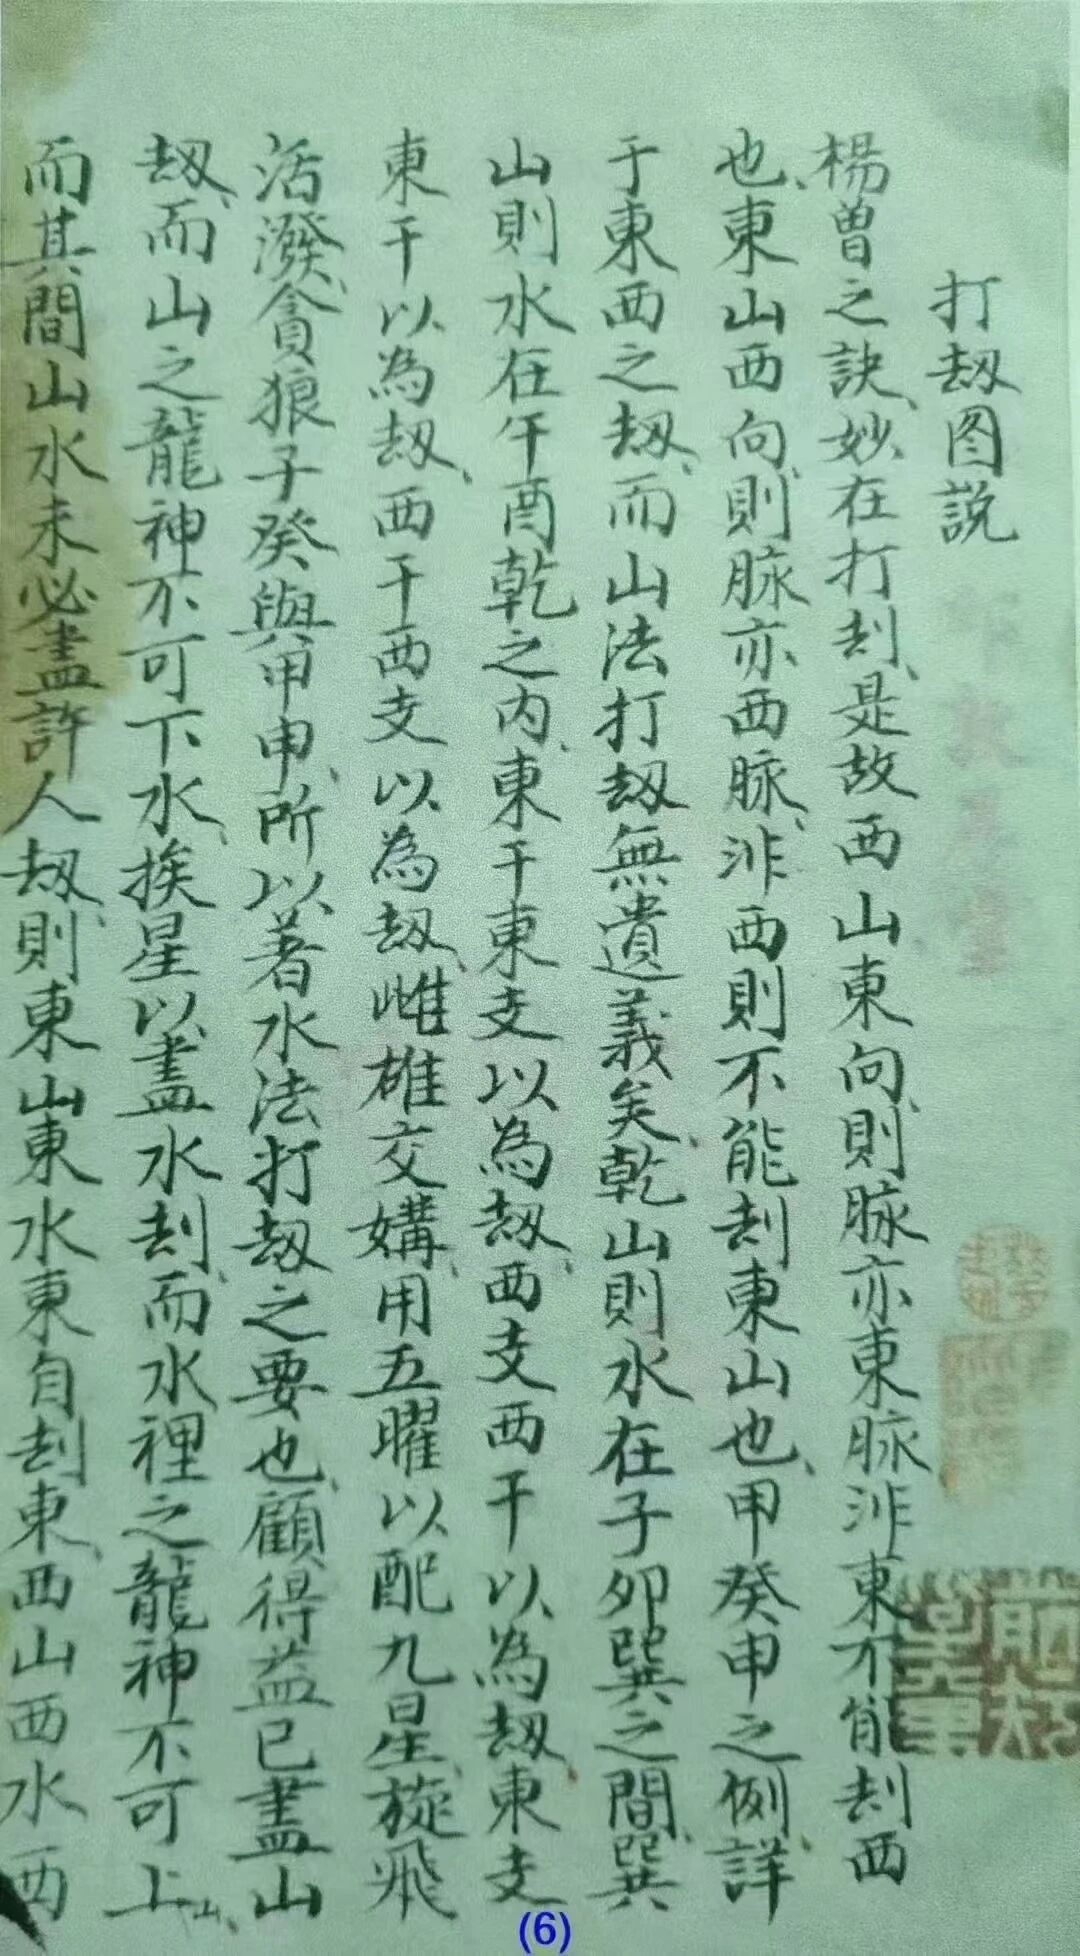 打刼图説
楊曾之訣、妙在打刦、是故西山東向、則脉亦東脉、非東不能刦西
也、東山西向、則脉亦西脉、非西則不能刦東山也、甲癸申之例、詳
于東西之刼、而山法打刼無遺義矣、乾山則水在子卯巽之間、巽
山則水在午酉乾之内、東干東支以為刼、西支西干以為刼、東支
東干以為刼、西干西支以為刼、雌雄交媾、用五曜以配九星、旋飛
活潑、貪狼子癸與甲申、所以著水法打刼之要也、顧得益已盡山
刼、而山之龍神不可下水、挨星以盡水刦、而水裡之龍神不可上山、
而其間山水未必盡許人刼、則東山東水東自刦東、西山西水西
(6)